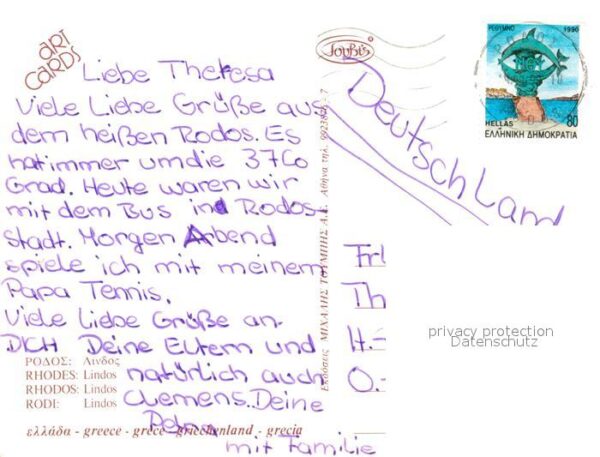 ART
CARDS
Liebe Theresa
Viele Liebe Grüße aus
dem heißen Rodos. Es
hat immer um die 37C°
Grad. Heute waren wir
mit dem Bus in Rodos-
Stadt. Morgen Abend
spiele ich mit meinem
Papa Tennis.
Viele Liebe Grüße an-
DICH Deine Eltern und
natürlich auch
Clemens. Deine
mit Familie
ΡΟΔΟΣ: Λίνδος
RHODES: Lindos
RHODOS: Lindos
RODI: Lindos
ελλάδα - greece - grèce - griechenland - grecia
Εκδόσεις ΜΙΧΑΛΗΣ ΤΟΥΜΠΗΣ Α.Ε. Αθήνα τηλ.
Toubi's
ΡΕΘΥΜΝΟ 1990
HELLAS 80
ΕΛΛΗΝΙΚΗ ΔΗΜΟΚΡΑΤΙΑ
Deutschland
Frl
Th
H.-
O.-
privacy protection
Datenschutz